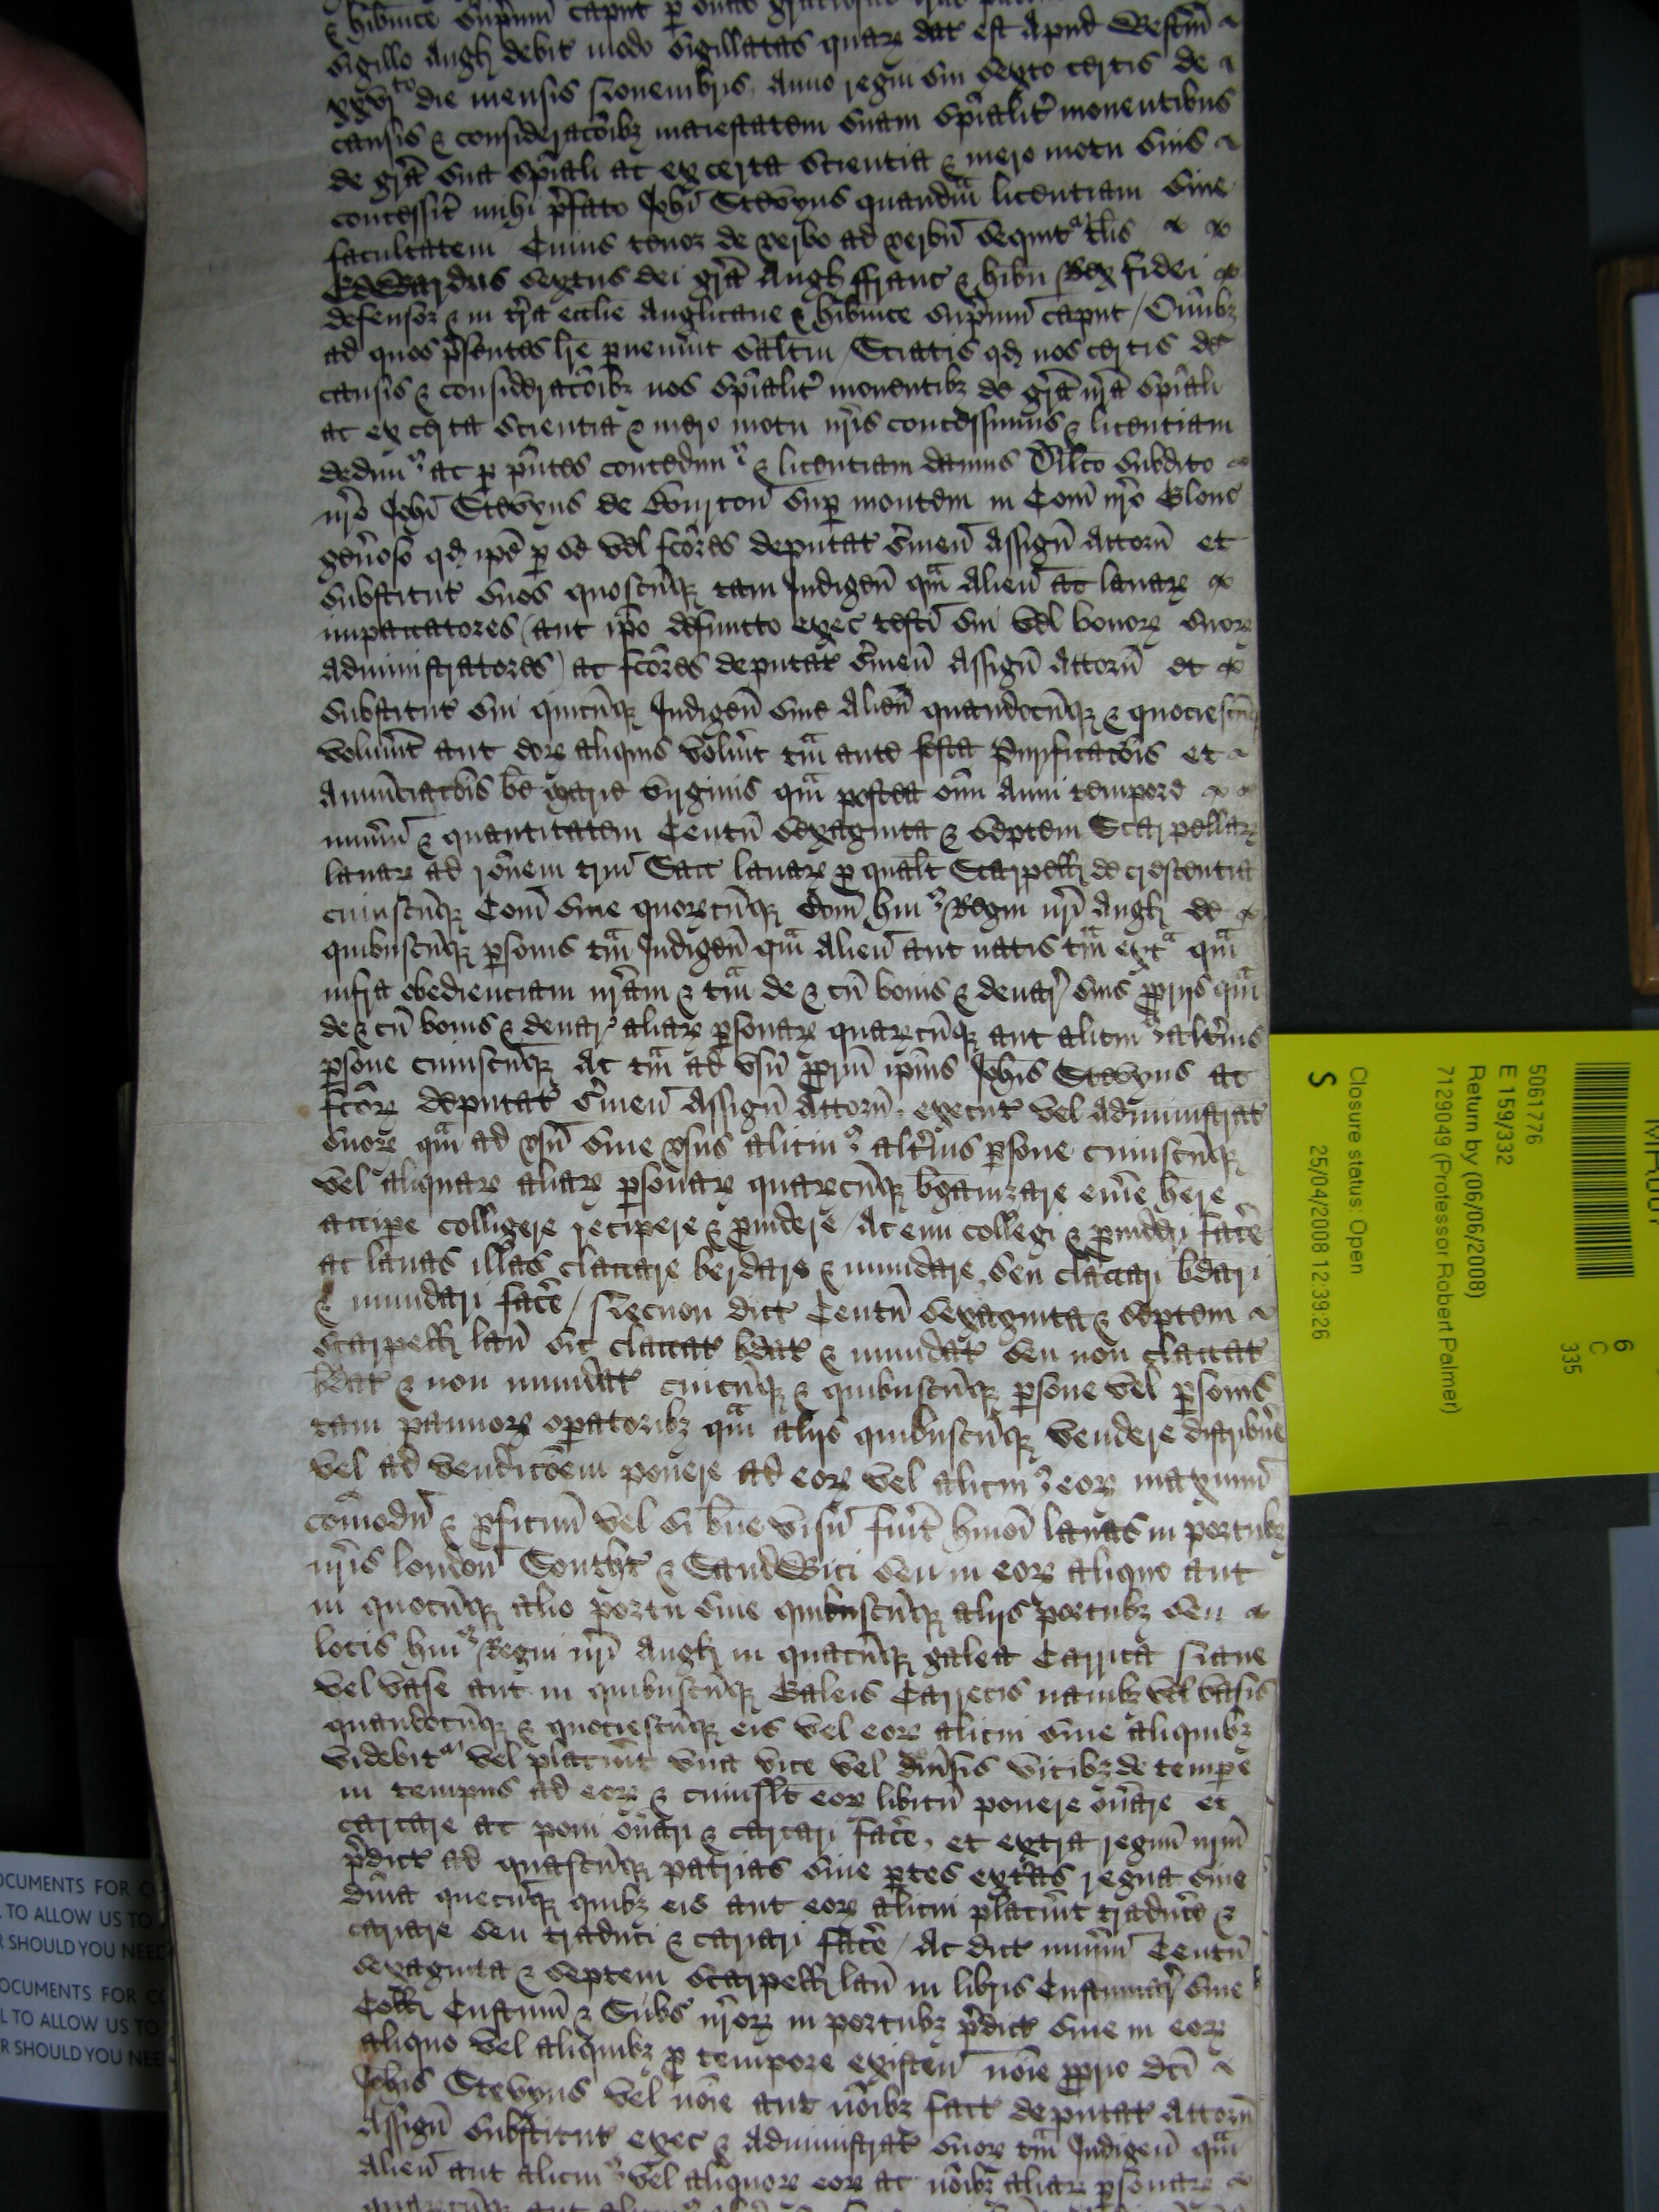 & hib̄nice Sup̄mū caput p
Sigillo Angl̄ debit modo Sigillatas quar̄ dat est Apud Westm̄
xxvjto die mensis Novembris Anno regni sui Sexto certis de
causis & consideracōibȝ maiestatem suam Sp̄ialit̄ monentibus
de gr̄a sua Sp̄iali ac ex certa Scientia & mero motu suis
concessit mihi p̄fato Joh̄i Stevyns quandm̄ licentiam sive
facultatem Cuius tenor de verbo ad verbū sequitr
Edwardus Sextus dei gr̄a Angl̄ ffranc & hib̄n Rex fidei
defensor & in tr̄a eccl̄ie Anglicane & hib̄nice Sup̄mū caput / Om̄ibȝ
ad quos p̄sentes lr̄e p̄uen̄int Salt̄m / Sciatis qd̄ nos certis de
causis & consideracōibȝ nos Sp̄ialit̄ monentibȝ de gr̄a nr̄a Sp̄iali
ac ex certa Scientia & mero motu nr̄is concessimus & licentiam
dedimꝰ ac p̄ p̄ntes concedimꝰ & licentiam damus Dil̄co Subdito
nr̄o Joh̄i Stevyns de Bourton Sup̄ montem in Com̄ nr̄o Glouc̄
gen̄oso qd̄ ip̄e p̄ se vel fc̄ores deputat s̄vien̄ Assign̄ Attorn̄ et
Substitut suos quoscūqȝ tam Indigen̄ qm̄ Alien̄ ac lanar̄
impaccatores / aut ip̄o defuncto exec testi sui vel bonor̄ suor̄
administratores / ac fc̄ores deputat s̄vien̄ Assign̄ Attorn̄ et
Substitut sui quicūqȝ Indigen̄ sive Alien̄ quandocūqȝ & quociescūqȝ
volu̅int aut eor̄ aliquis volu̅it tm̄ ante festa Purificacōis et
Annūciacōis b̄e Marie virginis qm̄ postea om̄i Anni tempore
num̄ū & quantitatem Centū Sexaginta & Septem Scarpellar̄
lanar̄ ad rōnem triū Sacc lanar̄ p̄ qual̄t Scarpell̄ de crescentia
cuiuscūqȝ Com̄ sive quorcūqȝ Com̄ huiꝰ Regni nr̄i Angl̄ de
quibuscūqȝ p̄sonis tm̄ Indigen̄ qm̄ Alien̄ aut natis tm̄ extra qm̄
infra obedienciam nr̄am & tm̄ de & cū bonis & denar̄ suis pp̄riis qm̄
de & cū bonis & denar̄ aliar̄ p̄sonar̄ quarcūqȝ aut alicuiꝰ alt̄ius
p̄sone cuiuscūqȝ Ac tm̄ ad vsū pp̄riū ip̄ius Joh̄is Stevyns ac
fc̄or̄ deputat s̄vien̄ Assign̄ Attorn̄ execut vel administrat
suor̄ qm̄ ad vsū sive vsus alicuiꝰ alt̄ius p̄sone cuiuscūqȝ
vel aliquar̄ aliar̄ p̄sonar̄ quarcūqȝ b̄ganizare em̄e h̄ere
accip̄e colligere recipere & p̄uidere / Ac emi collegi & p̄uideri fac̄e
ac lanas illas claccare berdare & mundare seu claccari b̄dari
& mundari fac̄e / Necnon dict Centū Sexaginta & Septem
Scarpell̄ lan̄ sic claccat b̄dat & mundat seu non claccat
b̄dat & non mundat cuicūqȝ & quibuscūqȝ p̄sone vel p̄sonis
tam pannor̄ op̄atoribȝ qm̄ aliis quibuscūqȝ vendere distribu̅e
vel ad vendicōem ponere ad eor̄ vel alicuiꝰ eor̄ maximū
cōmodū & p̄ficuū vel si b̄ne visū fu̅it hm̄oi lanas in portubȝ
nr̄is london̄ Southt & Sandwici seu in eor̄ aliquo aut
in quocūqȝ alio portu sive quibuscūqȝ aliis portubȝ seu
locis huiꝰ Regni nr̄i Angl̄ in quacūqȝ galea Carrica Nave
vel vase aut in quibuscūqȝ Galeis Carrecis navibȝ vel vasis
quandocūqȝ & quociescūqȝ eis vel eor̄ alicui sive aliquibȝ
videbitr vel placu̅it vna vice vel diu̅sis vicibȝ de temp̄e
in tempus ad eor̄ & cuiusl̄t eor̄ libitū ponere on̄are et
carcare ac poni on̄ari & carcari fac̄e et extra regnū nr̄m
p̄dict ad quascūqȝ patrias sive p̄tes ext̄as regna sive
dn̄ia quecūqȝ quibȝ eis aut eor̄ alicui placu̅it traduc̄e &
cariare seu traduci & cariari fac̄e / Ac dict num̄ū Centū
Sexaginta & Septem Scarpell̄ lan̄ in libris Custumar̄ sive
Coll̄ Custum̄ & Subs̄ nr̄or̄ in portubȝ p̄dict sive in eor̄
aliquo vel aliquibȝ p̄ tempore existen̄ nōie pp̄rio dc̄i
Joh̄is Stevyns vel nōie aut nōibȝ fact deputat Attorn̄
Assign̄ Substitut exec & Administrat suor̄ tm̄ Indigen̄ qm̄
Alien̄ aut alicuiꝰ vel aliquor̄ eor̄ ac nōibȝ aliar̄ p̄sonar̄
5061776
E 159/332
Return by (06/06/2008)
7129049 (Professor Robert Palmer)
Closure status: Open
S 25/04/2008 12:39:26
6
C
335
OCUMENTS FOR
TO ALLOW US TO
SHOULD YOU NEED
OCUMENTS FOR
TO ALLOW US TO
SHOULD YOU NEE